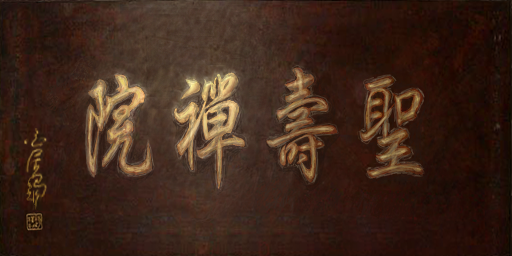 聖壽禪院